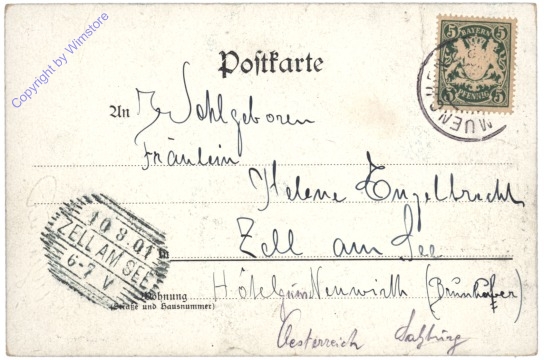 Copyright by Wimstore
Postkarte
BAYERN
5 5
PFENNIG
5 5
MUENCHEN
An Wohlgeboren
Fräulein
Helene Engelbrecht
Zell am See
10.8.01
ZELL AM SEE
6-7 V
in
Hôtel zum Neuwirth
Wohnung
(Straße und Hausnummer)
Oesterreich Salzburg